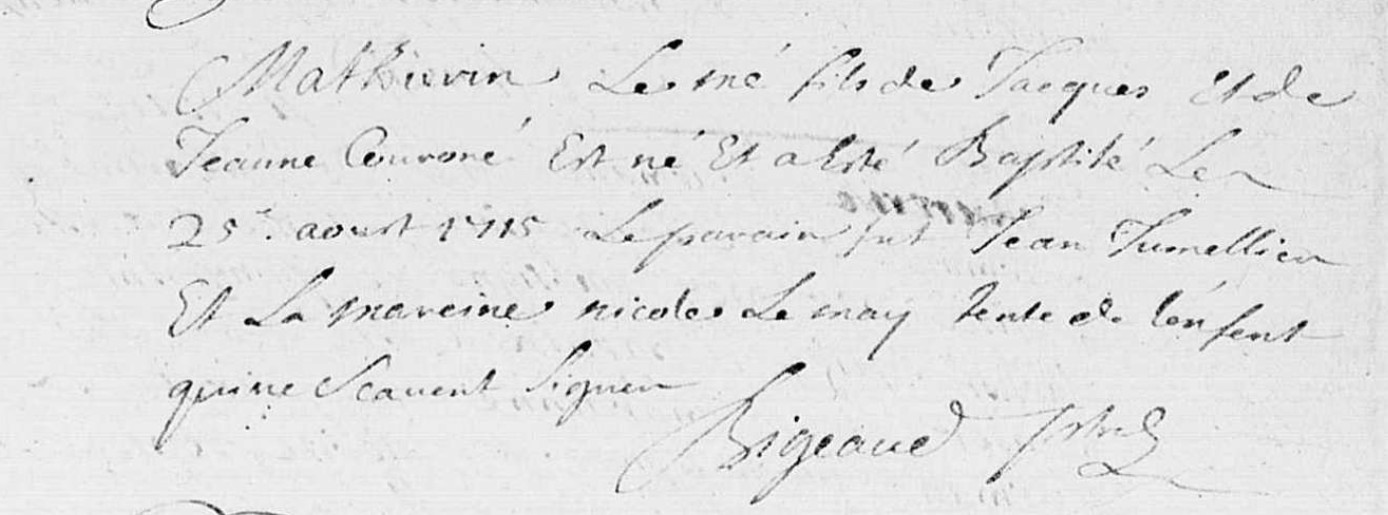 Mathievrin Lesmé fils de Jacques et de
Jeanne Couroné Est né Et a Esté Baptisé Le
25e. aoust 1715 Le parain fut Jean Jumellier
Et La mareine nicole Le may tente de lenfent
qui ne Scauent Signer
Bigeaud